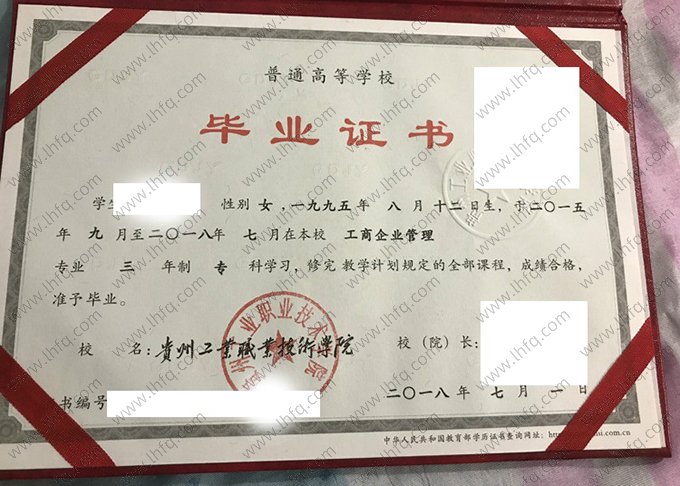 普通高等学校
毕业证书
学生 性别 女，一九九五年 八 月 十二 日生，于二〇一五
年 九 月至二〇一八年 七 月在本校 工商企业管理
专业 三 年制 专 科学习，修完教学计划规定的全部课程，成绩合格，
准予毕业。
校 名：贵州工業職業技術學院 校（院）长：
书编号 二〇一八年 七 月 一 日
中华人民共和国教育部学历证书查询网址：
www.lhfq.com